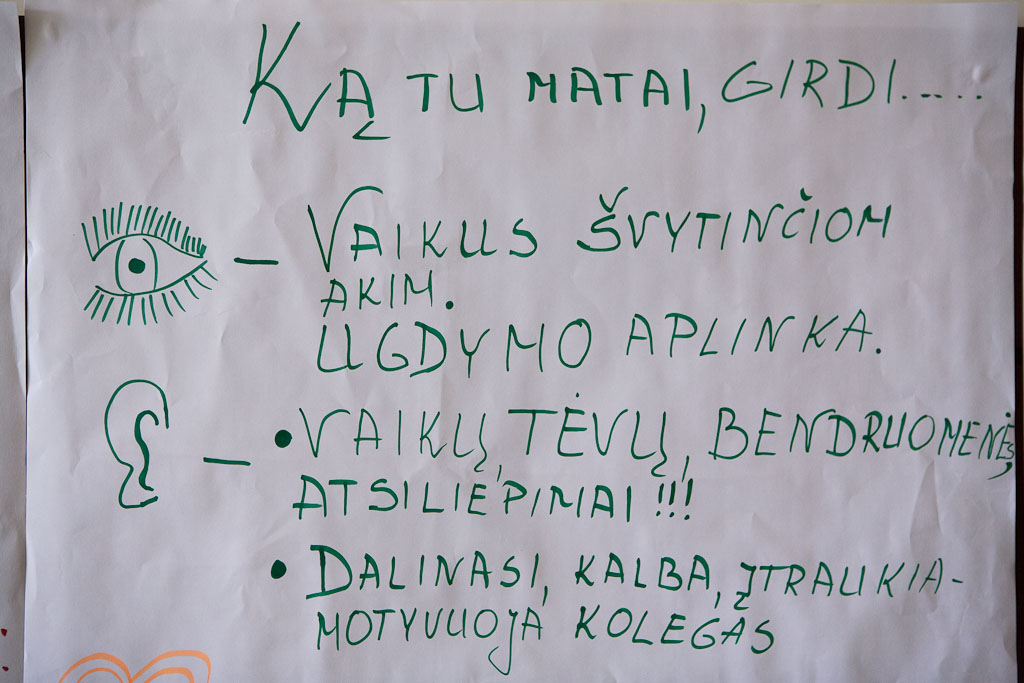 KĄ TU MATAI, GIRDI.....
– VAIKUS ŠVYTINČIOM
AKIM.
UGDYMO APLINKA.
– • VAIKŲ, TĖVŲ, BENDRUOMENĖS,
ATSILIEPIMAI !!!
• DALINASI, KALBA, ĮTRAUKIA-
MOTYVUOJA KOLEGAS